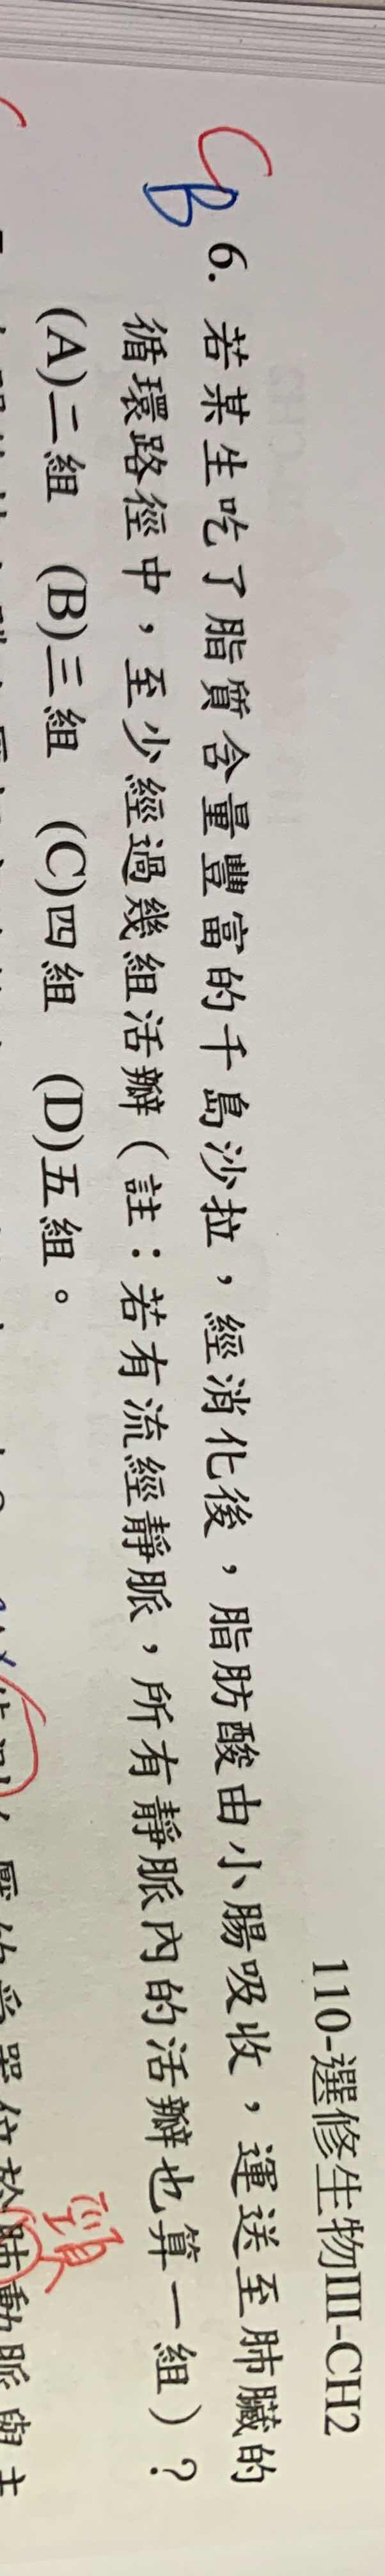 110-選修生物III-CH2
C
B
6. 若某生吃了脂質含量豐富的千島沙拉，經消化後，脂肪酸由小腸吸收，運送至肺臟的
循環路徑中，至少經過幾組活瓣（註：若有流經靜脈，所有靜脈內的活瓣也算一組）？
(A)二組 (B)三組 (C)四組 (D)五組。
頸